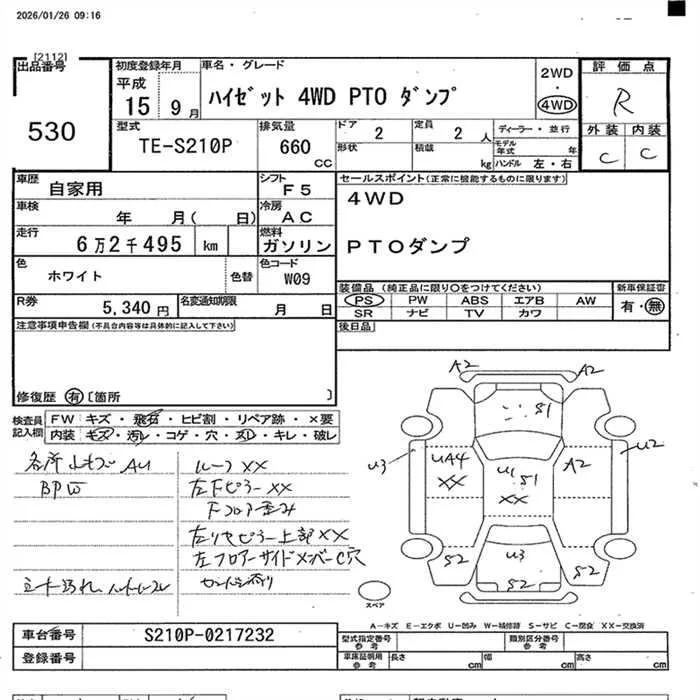 2026/01/26 09:16
[2112]
出品番号
530
初度登録年月
平成
15 9 月
車名・グレード
ハイゼット 4WD PTO ダンプ
2WD
・
4WD
評価点
R
外装 内装
C C
型式
TE-S210P
排気量
660
CC
ドア 2
形状
定員 2 人
積載 kg
ディーラー・並行
モデル年式 年
ハンドル 左・右
車歴
自家用
シフト
F5
車検
年 月( 日)
冷房
AC
走行
6万2千495 km
燃料
ガソリン
色
ホワイト
色替
色コード
W09
R券
5,340 円
名変通知期限
月 日
セールスポイント(正常に機能するものに限ります)
4WD
PTOダンプ
装備品(純正品に限り○をつけてください)
PS PW ABS エアB AW
SR ナビ TV カワ
新車保証書
有・無
後日品
注意事項申告欄(不具合内容等は具体的に記入して下さい)
修復歴 有〔箇所 〕
検査員記入欄
FW キズ・飛石・ヒビ割・リペア跡・×要
内装 キズ・汚レ・コゲ・穴・スレ・キレ・破レ
各所 AU
BP
ルーフ××
左Fピラー××
Fフロア歪み
左リヤピラー上部××
左フロアーサイドメンバーC穴
A2
A2
S1
U3
UA4
××
U1 S1
××
A2
U2
S2
U3
S2
S2
スペア
A-キズ E-エクボ U-凹み W-補修跡 S-サビ C-腐食 XX-交換済
車台番号
S210P-0217232
登録番号
型式指定番号
参考
類別区分番号
参考
車庫証明用
参考
長さ cm 幅 cm 高さ cm